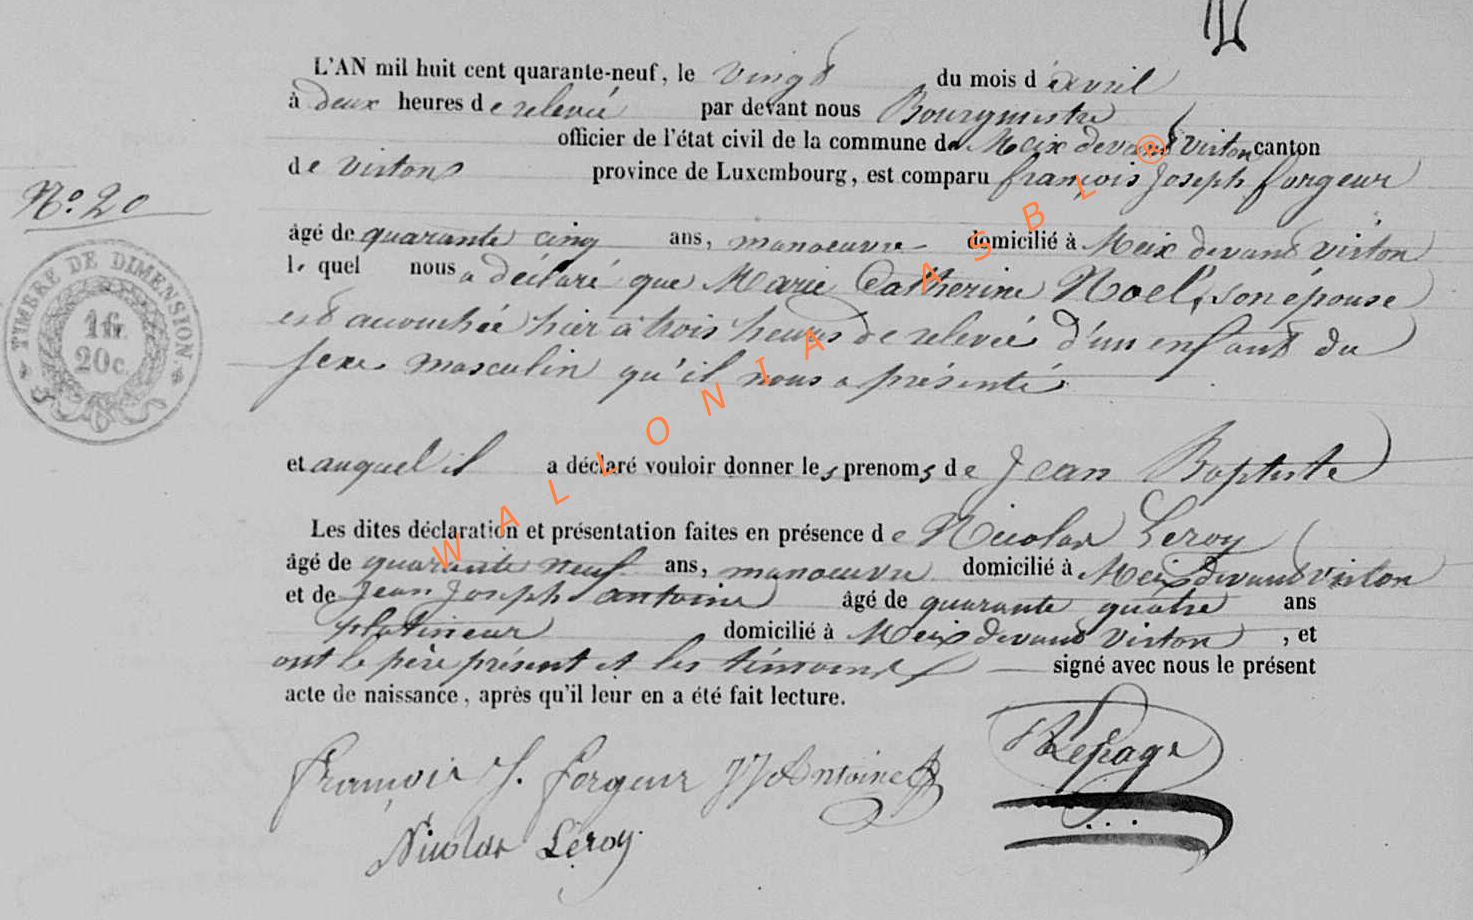 L'AN mil huit cent quarante-neuf, le vingt du mois d'avril
à deux heures de relevée par devant nous Bourgmestre
officier de l'état civil de la commune de Meix devant Virton canton
de Virton province de Luxembourg, est comparu françois Joseph forgeur
N° 20
âgé de quarante cinq ans, manoeuvre domicilié à Meix devant Virton
le quel nous a déclaré que Marie Catherine Noel, son épouse
est accouchée hier à trois heures de relevée d'un enfant du
sexe masculin qu'il nous a présenté
TIMBRE DE DIMENSION
1 fr.
20 c.
et auquel il a déclaré vouloir donner les prenoms de Jean Baptiste
Les dites déclaration et présentation faites en présence de Nicolas Leroy
âgé de quarante neuf ans, manoeuvre domicilié à Meix devant Virton
et de Jean Joseph antoine âgé de quarante quatre ans
platineur domicilié à Meix devant Virton, et
ont le père présent et les témoins signé avec nous le présent
acte de naissance, après qu'il leur en a été fait lecture.
françois J. forgeur JJ Antoine Lepage
Nicolas Leroy
WALLONIA ASBL ®